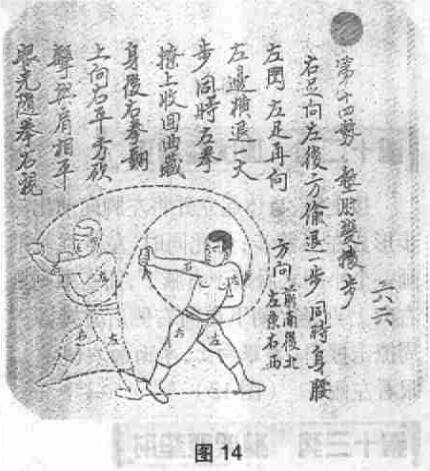 第十四勢 墊肘雙機步
右足向左後方偷退一步同時身腰
左閃左足再向
左邊橫退一大
步同時右拳
撩上收回曲藏
身後右拳翻
上向右平劈砍
擊與肩相平
眼光隨拳右視
方向 前南後北
左東右西
二六六
右
左
右
左
右
左
图14